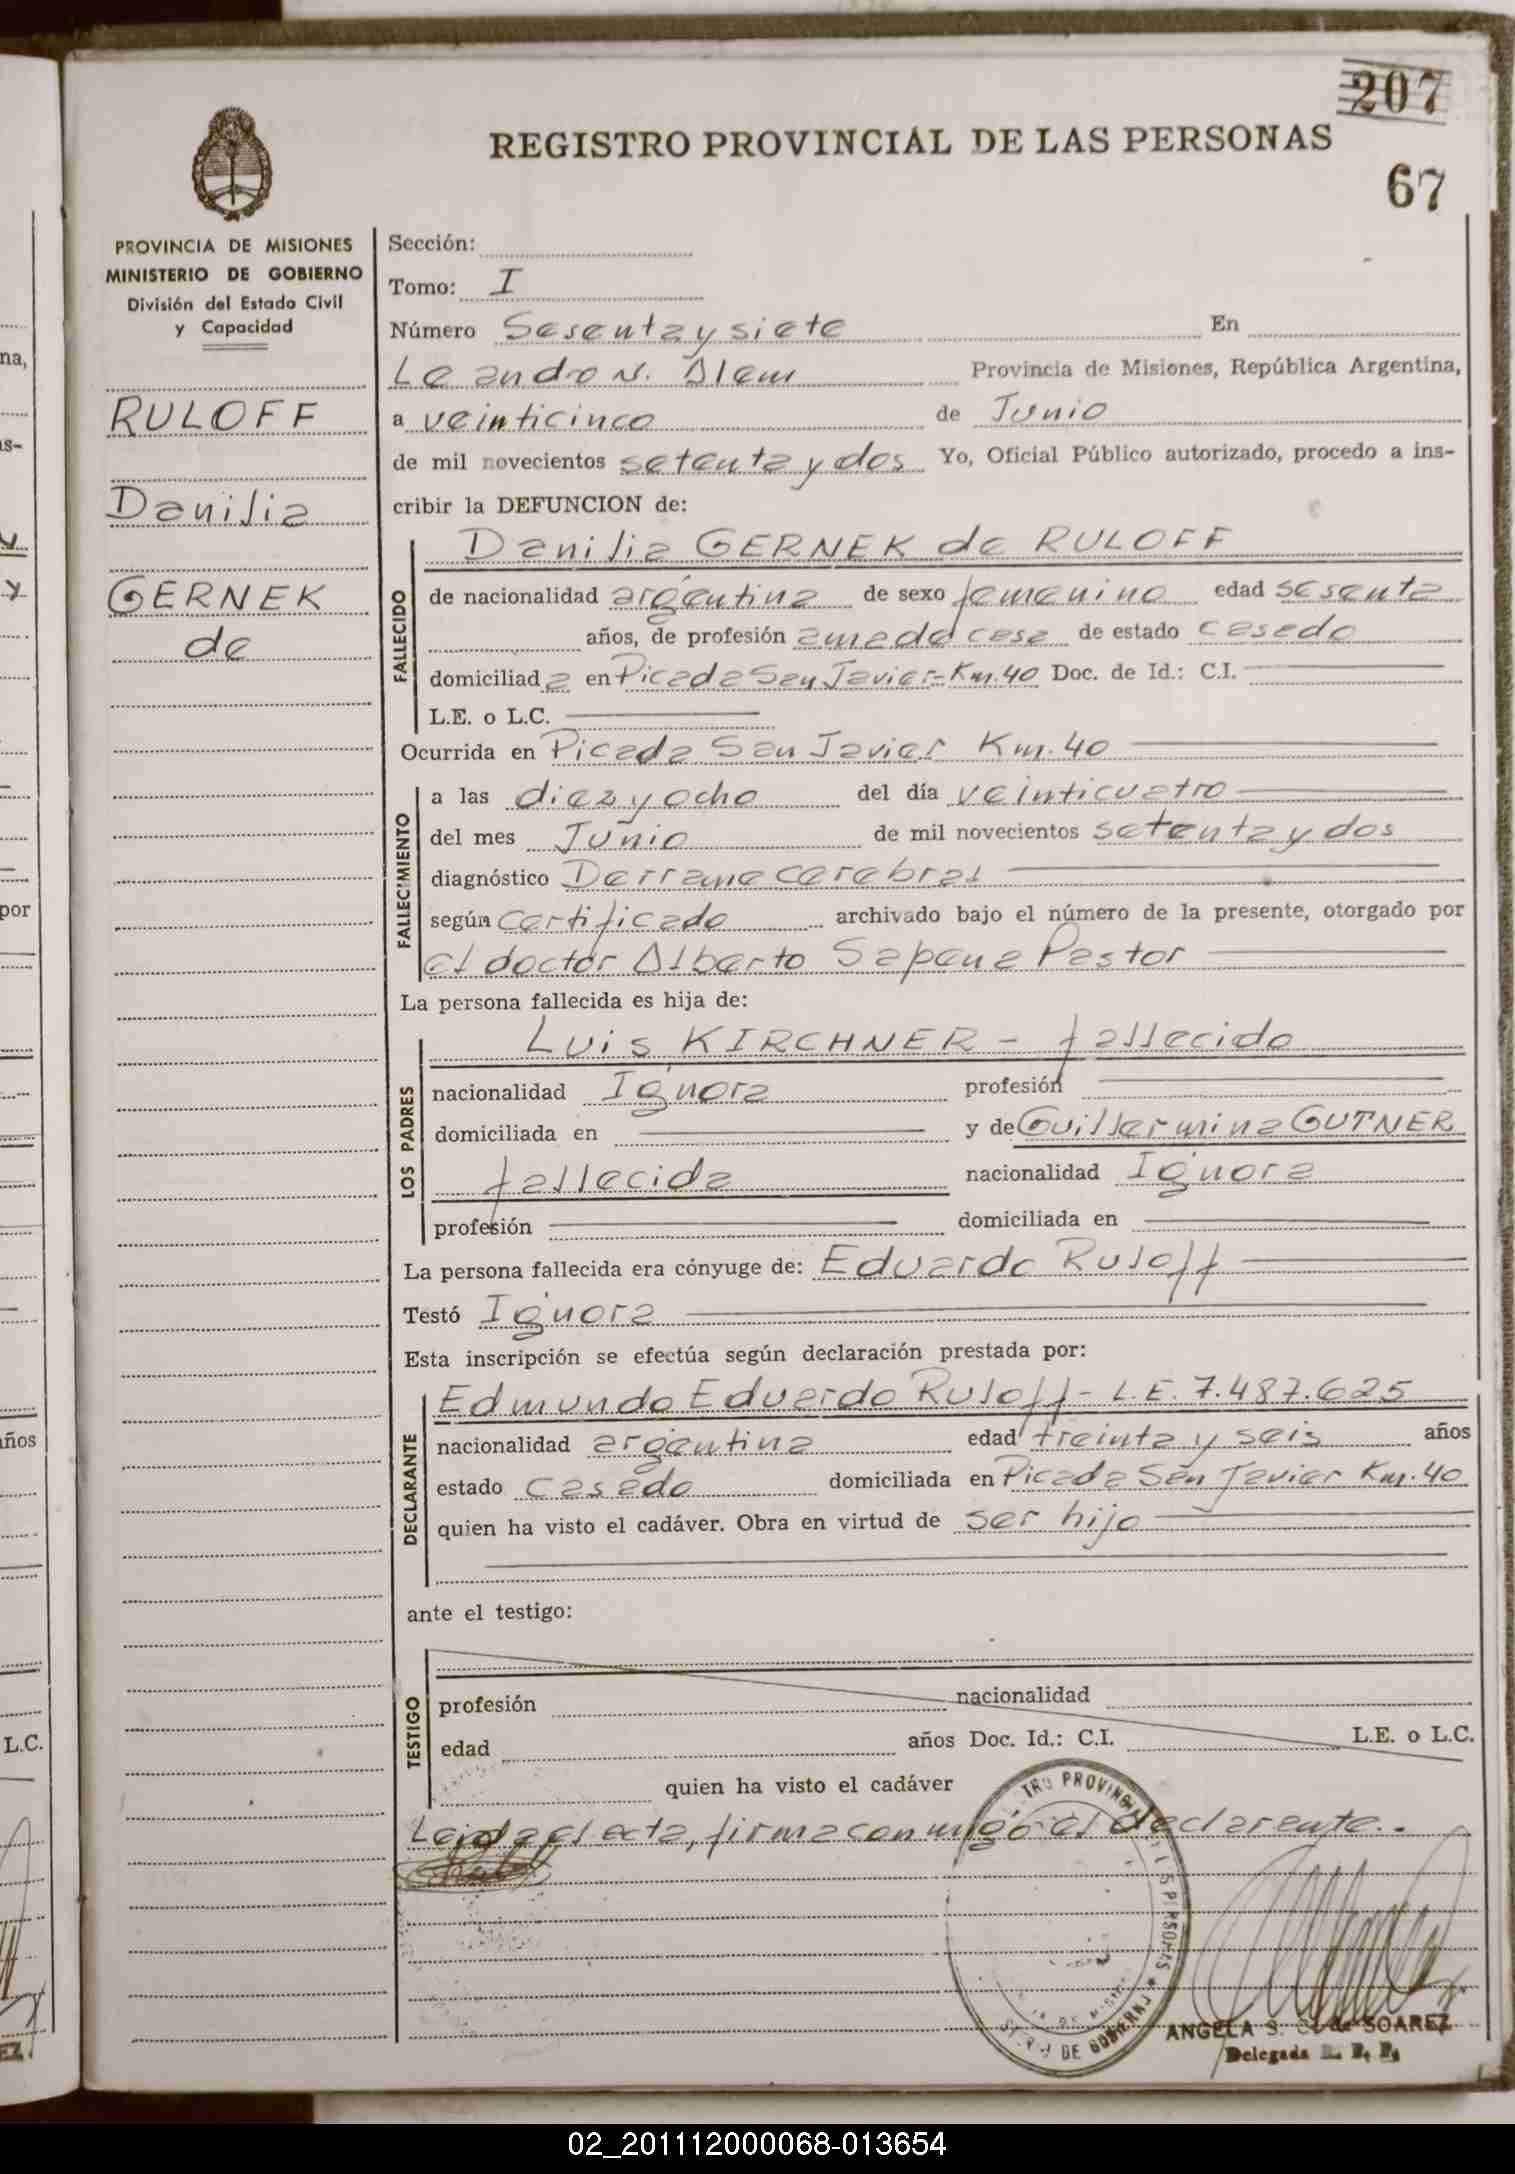 207
REGISTRO PROVINCIAL DE LAS PERSONAS
67
PROVINCIA DE MISIONES
MINISTERIO DE GOBIERNO
División del Estado Civil
y Capacidad
RULOFF
Danilia
GERNEK
de
Sección:
Tomo: I
Número Sesenta y siete En
Leandro N. Alem Provincia de Misiones, República Argentina,
a veinticinco de Junio
de mil novecientos setenta y dos Yo, Oficial Público autorizado, procedo a ins-
cribir la DEFUNCION de:
FALLECIDO
Danilia GERNEK de RULOFF
de nacionalidad argentina de sexo femenino edad sesenta
años, de profesión ama de casa de estado casado
domiciliada en Picada San Javier-Km.40 Doc. de Id.: C.I.
L.E. o L.C.
Ocurrida en Picada San Javier Km.40
FALLECIMIENTO
a las diez y ocho del día veinticuatro
del mes Junio de mil novecientos setenta y dos
diagnóstico Derrame cerebral
según certificado archivado bajo el número de la presente, otorgado por
el doctor Alberto Sapena Pastor
La persona fallecida es hija de:
LOS PADRES
Luis KIRCHNER - fallecido
nacionalidad Ignora profesión
domiciliada en y de Guillermina GUTNER
fallecida nacionalidad Ignora
profesión domiciliada en
La persona fallecida era cónyuge de: Eduardo Ruloff
Testó Ignora
Esta inscripción se efectúa según declaración prestada por:
DECLARANTE
Edmundo Eduardo Ruloff - L.E. 7.487.625
nacionalidad argentina edad treinta y seis años
estado casado domiciliada en Picada San Javier Km.40
quien ha visto el cadáver. Obra en virtud de ser hijo
ante el testigo:
TESTIGO
profesión nacionalidad
edad años Doc. Id.: C.I. L.E. o L.C.
quien ha visto el cadáver
Leida el acta, firma conmigo el declarante..
ANGELA S. C. de SOAREZ
Delegada R. P. P.
na,
as-
por
años
L.C.
EZ
02_201112000068-013654